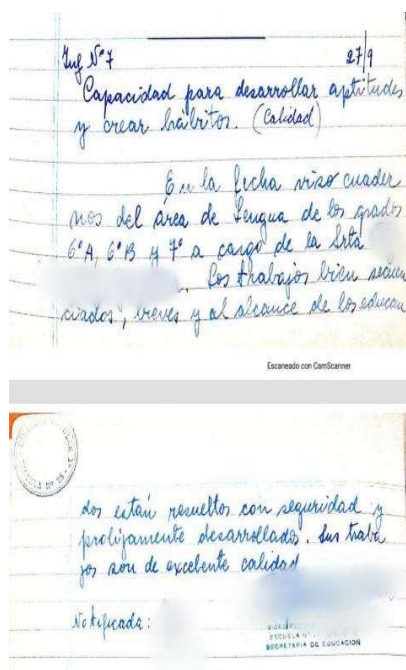 Inf Nº 7 27/9
Capacidad para desarrollar aptitudes
y crear hábitos. (Calidad)
En la fecha viso cuader
nos del área de Lengua de los grados
6ºA, 6ºB y 7º a cargo de la Srta
. Los trabajos bien secuen
ciados, breves y al alcance de los educan
Escaneado con CamScanner
dos están resueltos con seguridad y
prolijamente desarrollados. Sus traba
jos son de excelente calidad
Notificada:
ESCUELA Nº
SECRETARIA DE EDUCACION